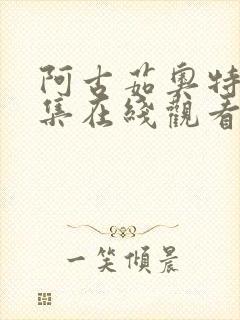 阿古茹奥特
集在綫觀看
一笑傾晨